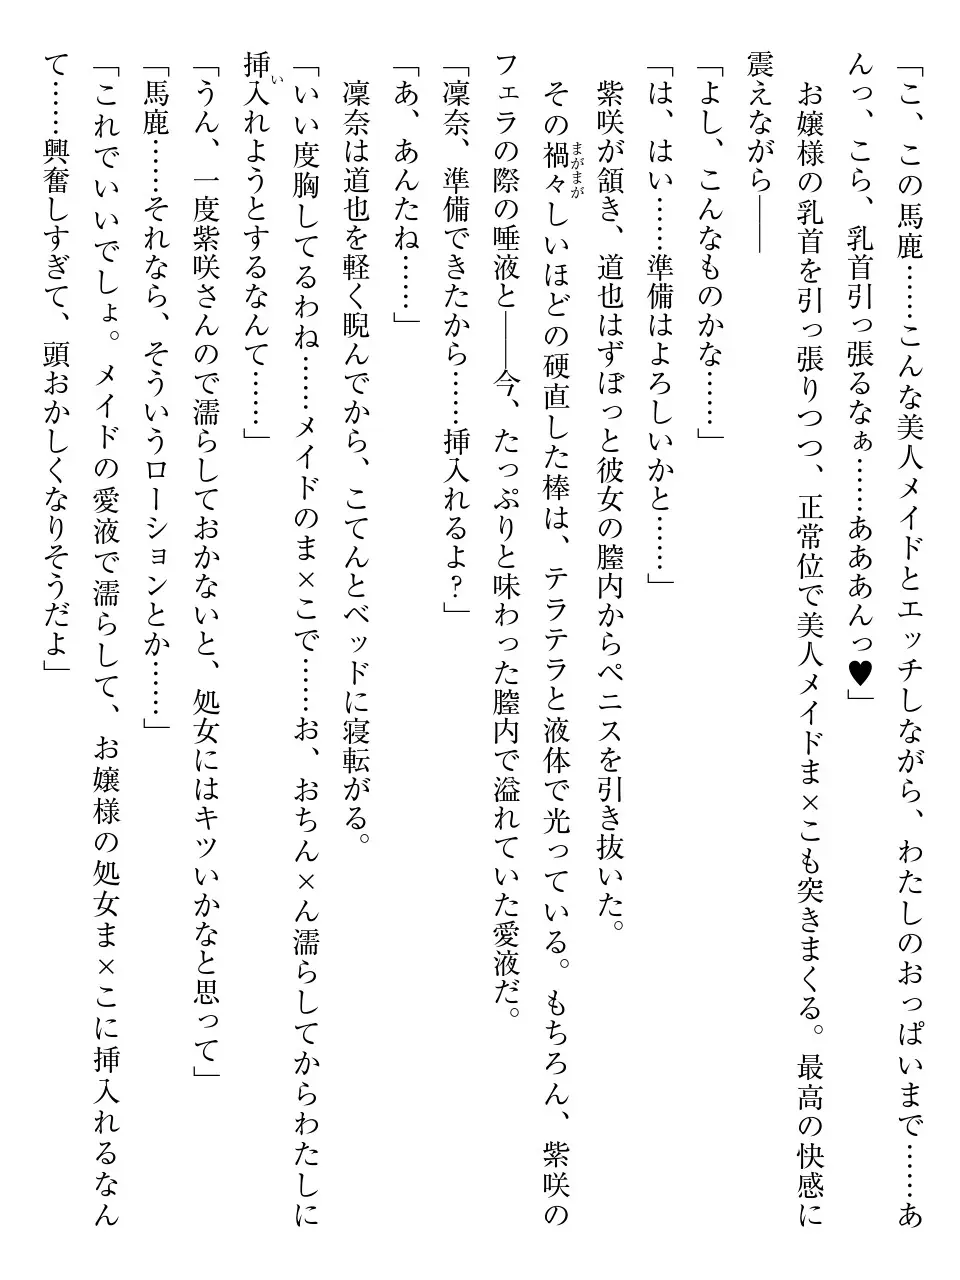 「こ、この馬鹿……こんな美人メイドとエッチしながら、わたしのおっぱいまで……あ
んっ、こら、乳首引っ張るなぁ……あああんっ♥」
お嬢様の乳首を引っ張りつつ、正常位で美人メイドま×こも突きまくる。最高の快感に
震えながら――
「よし、こんなものかな……」
「は、はい……準備はよろしいかと……」
紫咲が頷き、道也はずぼっと彼女の膣内からペニスを引き抜いた。
その禍々しいほどの硬直した棒は、テラテラと液体で光っている。もちろん、紫咲の
フェラの際の唾液と――今、たっぷりと味わった膣内で溢れていた愛液だ。
「凜奈、準備できたから……挿入れるよ?」
「あ、あんたね……」
凜奈は道也を軽く睨んでから、こてんとベッドに寝転がる。
「いい度胸してるわね……メイドのま×こで……お、おちん×ん濡らしてからわたしに
挿入れようとするなんて……」
「うん、一度紫咲さんので濡らしておかないと、処女にはキツいかなと思って」
「馬鹿……それなら、そういうローションとか……」
「これでいいでしょ。メイドの愛液で濡らして、お嬢様の処女ま×こに挿入れるなん
て……興奮しすぎて、頭おかしくなりそうだよ」